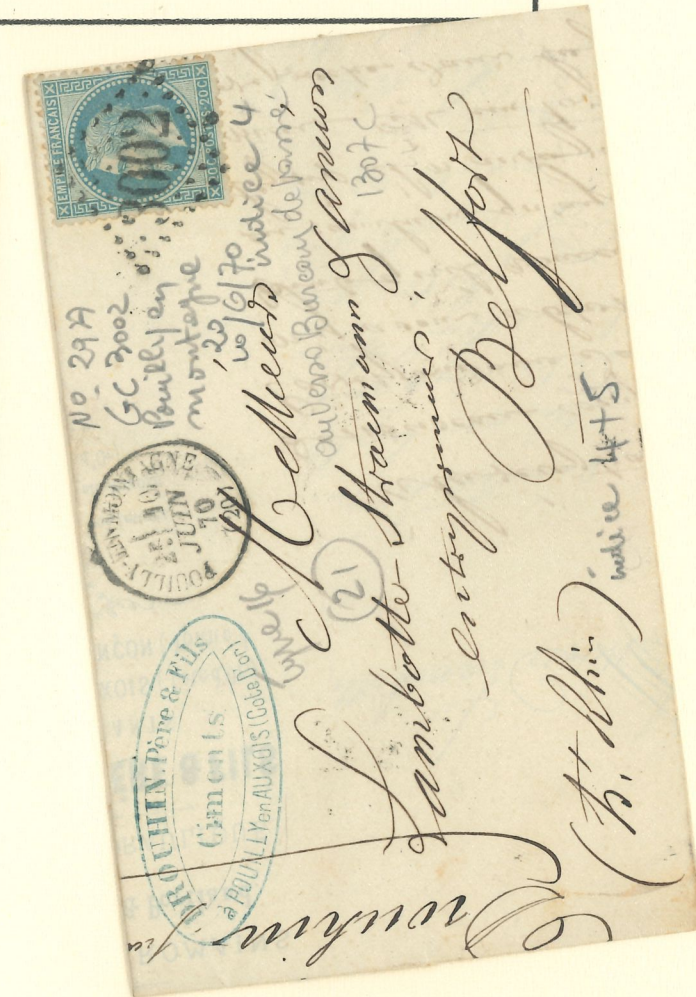 EMPIRE FRANÇAIS
20 C POSTES 20 C
3002
No 29A
GC 3002
Pouilly en
montagne
20
10/6/70
indice 4
au verso Bureau de passé
1307 C
POUILLY-EN-MONTAGNE
10
JUIN
70
(20)
type 16
(21)
DROUHIN Père & Fils
Ciments
à POUILLY en AUXOIS (Cote D'or)
Messieurs
Lambotte-Straemann
entrepreneurs
Belfort
(Ht Rhin)
indice 4+5
Drouhin